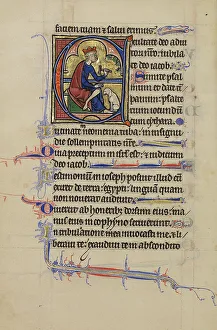 faciem tuam & salui erimus.
Exultate deo adiu
tori nr̄o: iubila
te deo iacob.
Sumite psal
mum & date tim
panum: psalt'iū
iocundum
cum cythara.
Bucinate neomenia tuba: in insigni
die sollempnitatis ur̄e.
Quia preceptum in isrł est: & iu
dicium deo iacob.
Testimoniū in ioseph posuit illud cū
exiret de terra egypti: linguā quam
non nouerat audiuit.
Diuertit ab honerib; dorsum eius: ma
nus eius in cophyno seruierunt.
In tribulatione inuocasti me & li
beraui te: exaudiui te in abscondito